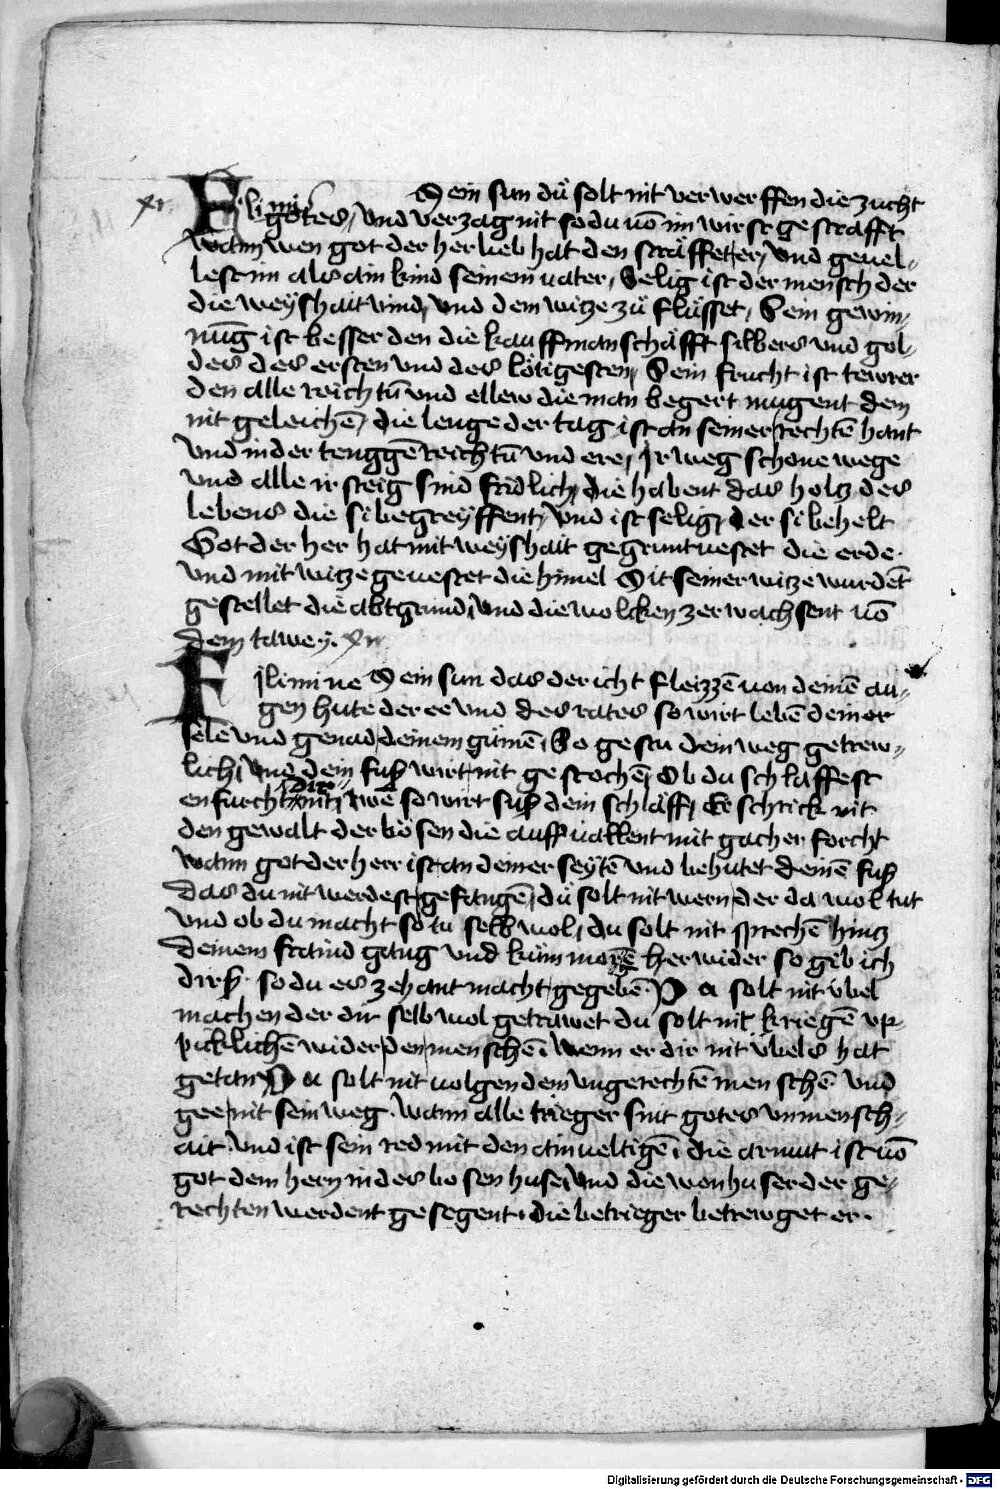 xi. Fili mi Mein sun dů solt nit verwerffen die zucht
gotes, vnd verzag nit so du uō im wirst gestrafft
wann wen got der her lieb hat den sträffet er, vnd geuel-
lest im als ain kind seinem uater, Selig ist der mensch der
die weÿshait vind, vnd dem witze zů flüsset, Sein gewin-
nūg ist besser den die kauffmanschäfft silbers vnd gol-
des des ersten vnd des lötigesten, Sein frucht ist tewrer
den alle reichtū vnd ellew die man begert mugent dem
nit geleichē, die lenge der tag ist an seiner rechtē hant
vnd in der tenggē reichtū vnd ere, Ir weg schone wege
vnd alle ir steig sind fridlich, die habent das holtz des
lebens die si begreÿffent, vnd ist selig, der si behelt
Got der her hat mit weÿshait gegruntuestet die erde.
vnd mit witze geuestet die himel Mit seiner witze wurdēt
gestellet die abtgrund, vnd die wolcken zerwachsent uō
dem tawe xii
Fili mi ne Mein sun das der icht fleizzē uon deinē au-
gen hute der ee vnd des rates so wirt lebē deiner
sele vnd genad deinem gůmē, So gestu dein weg getrew-
lich, vnd dein fuß wirt nit gestochē, Ob du schlaffest
dir
enfurcht nit, rwē so wirt suß dein schläff, Erschrick nit
den gewalt der bösen die auff uallent mit gacher forcht
wann got der herr ist an deiner seytē vnd behutet deinē fuß
das du nit werdest gefangē, dů solt nit wern der da wol tut
vnd ob du macht so tu selb wol, du solt nit sprechē hintz
deinem fraind gang vnd kum morgē herwider so gib ich
dirß so du es zehant macht gegebē. Du solt nit vbel
machen der dir selb wol getrawet du solt nit kriegē vp-
picklichē wider den menschē, wenn er dir nit vbels hat
getan Du solt nit uolgen dem vngerechtē menschē vnd
gee nit sein weg. Wann alle trieger sint gotes vnmensch-
ait, vnd ist sein red mit den ainueltigē, die armut ist uō
got dem hern in des bosen huse, vnd die wonhuser der ge-
rechten werdent gesegent, die betrieger betrewget er.
Digitalisierung gefördert durch die Deutsche Forschungsgemeinschaft - DFG